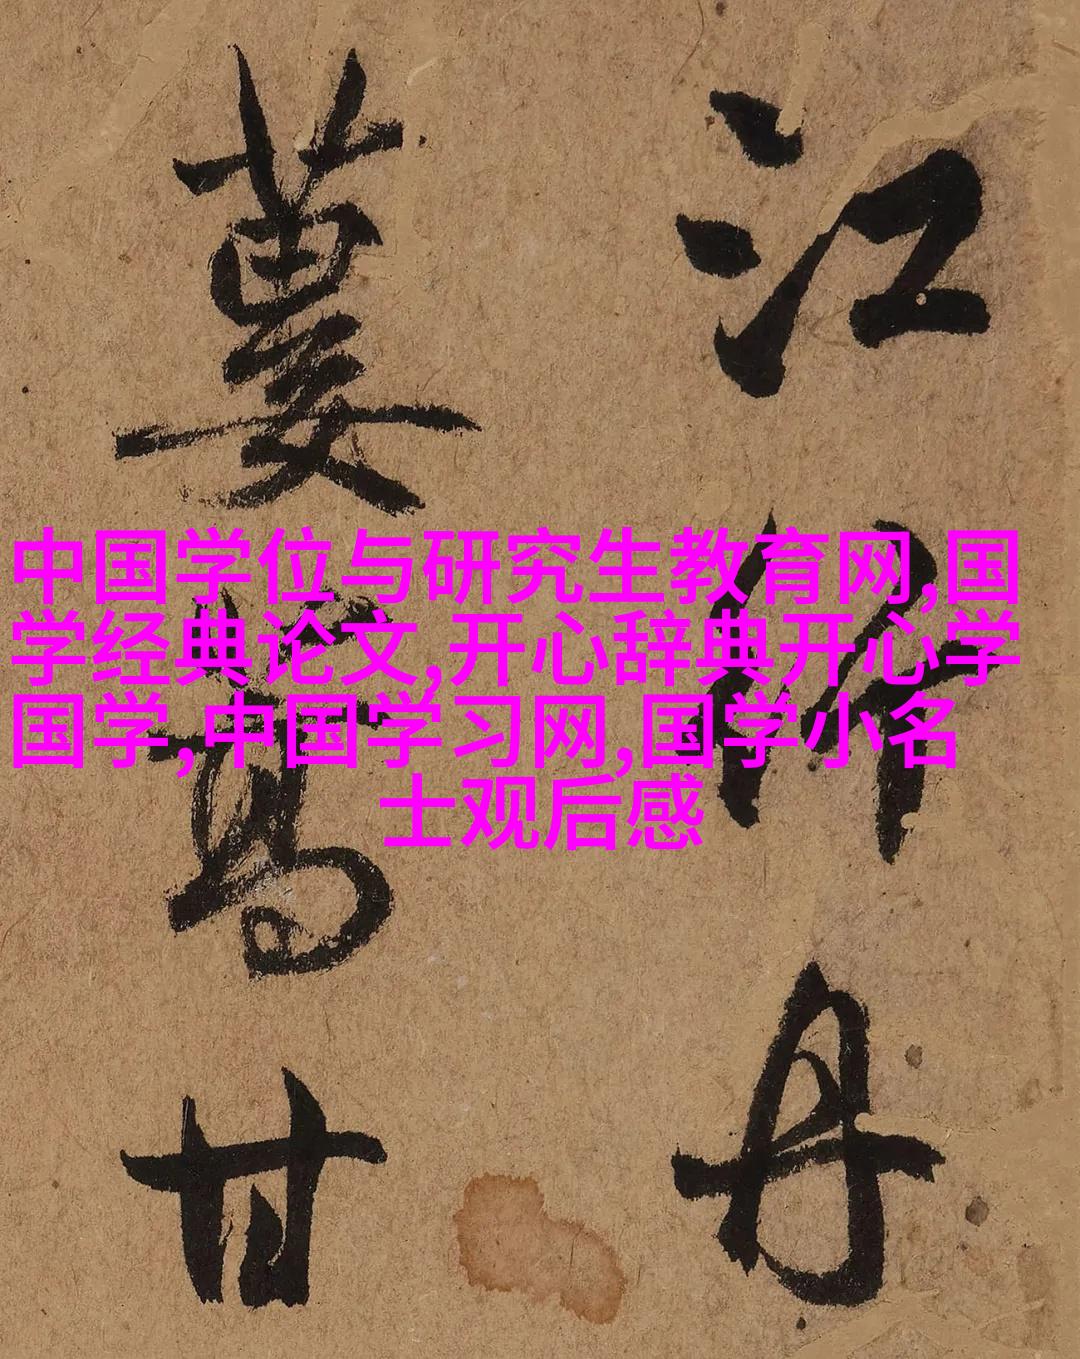 江
丹
蔞蒿甘
中国学位与研究生教育网,国
学经典论文,开心辞典开心学
国学,中国学习网,国学小名
士观后感